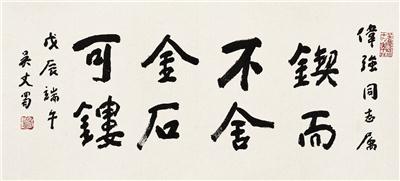 偉強同志属
鍥而
不舍
金石
可鏤
戊辰端午
吴丈蜀